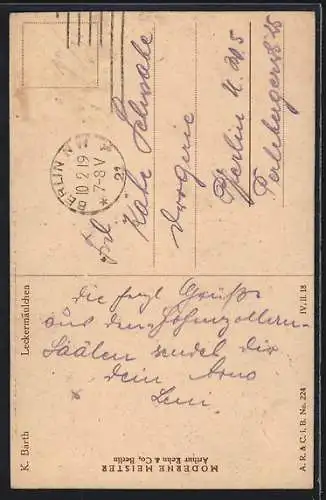 BERLIN NW
10.2.19
* 7-8 V *
21
Frl Käte Schwabe
Drogerie
Berlin N.W. 5
Perlebergerstr
Die herzl Grüße
aus den Hohenzollern-
Säälen sendet Dir
Dein Arno
Leni.
K. Barth
Leckermäulchen
MODERNE MEISTER
Arthur Rehn & Co, Berlin
IV. II. 18
A. R. & C. i. B. No. 224